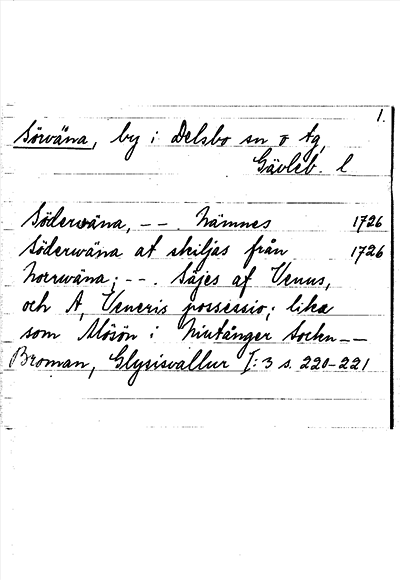 1.
Sörväna, by i Delsbo sn o tg,
Gävleb. l
Söderwäna, -- . Nämnes 1726
Söderwäna at skiljas från 1726
Norrwäna; -- . Säjes af Venus,
och A, Veneris possessio; lika
som Mösön i Niutånger Sockn --
Broman, Glysisvallur I: 3 s. 220-221